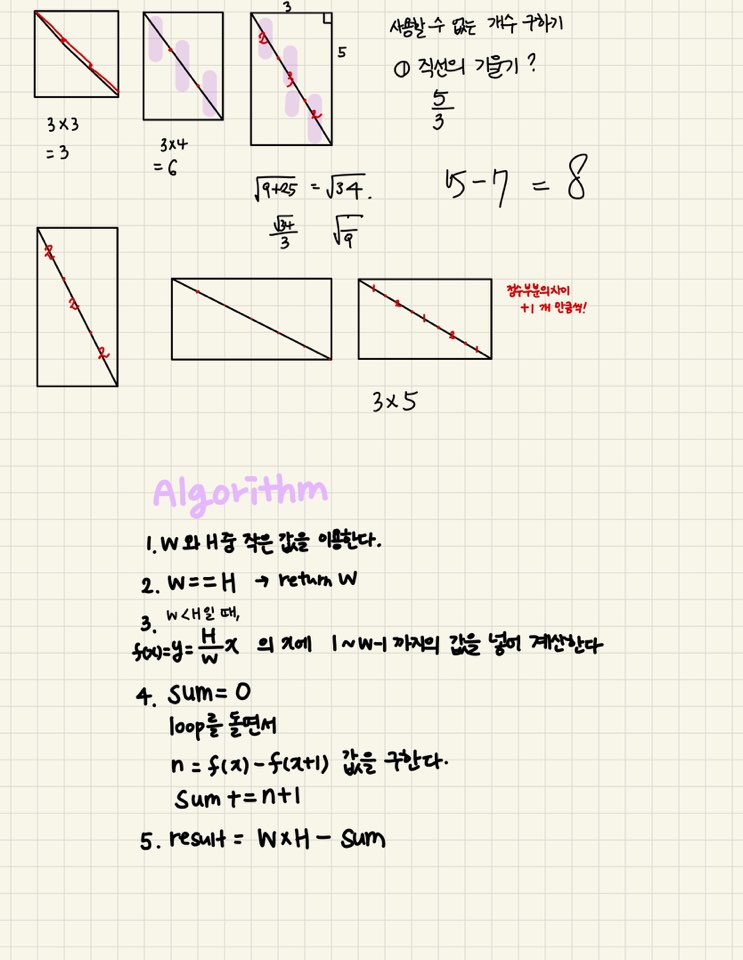 3
5
2
3
2
3×3
=3
3×4
=6
사용할 수 없는 개수 구하기
① 직선의 기울기?
5/3
√9+25 = √34.
√34/3 √9
15-7 = 8
2
2
2
1
2
1
2
1
정수부분의 차이
+1 개 만큼씩!
3×5
Algorithm
1. W와 H 중 작은 값을 이용한다.
2. W==H → return W
3. W<H일 때,
f(x)=y=H/W x 의 x에 1~W-1까지의 값을 넣어 계산한다
4. sum=0
loop를 돌면서
n=f(x)-f(x+1) 값을 구한다.
Sum+=n+1
5. result= W×H- sum